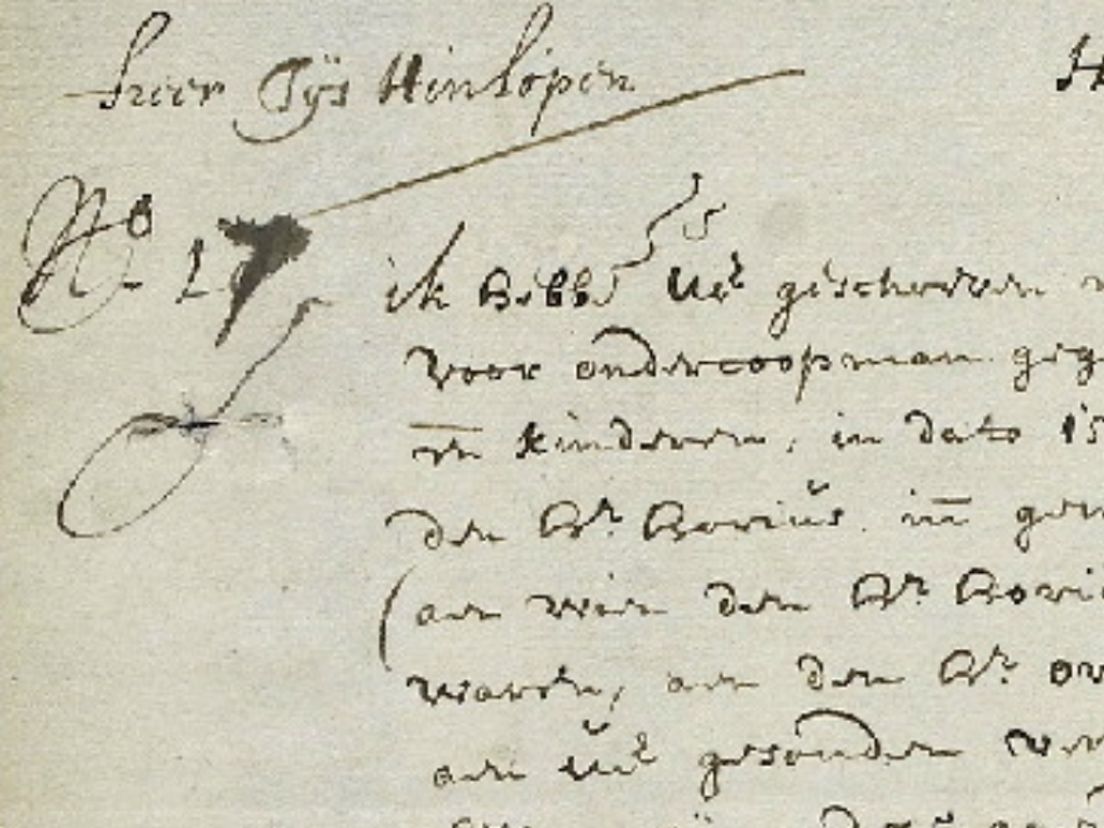 heer Gijs Hinlopen H
No 17
ik hebbe UE geschreven
voor ondercoopman geg
en kinderen, in dato 15
den Hr. Hovius. in gen
(aen wien den Hr Hovi
waren, aen den Hr. ov
aen UE gesonden